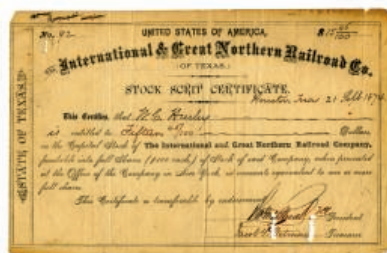 No. 82
UNITED STATES OF AMERICA,
$15 45/100
The International & Great Northern Railroad Co.
(OF TEXAS.)
STOCK SCRIP CERTIFICATE.
Houston, Texas 21 Sept 1874
This Certifies that W. C.
is entitled to Fifteen 45/100 Dollars
in the Capital Stock of The International and Great Northern Railroad Company,
fundable into full Shares ($100 each) of Stock of said Company, when presented
at the Office of the Company in New York, in amounts equivalent to one or more
full shares.
This Certificate is transferable by endorsement.
President
Jacob S. Wetmore Treasurer
STATE OF TEXAS